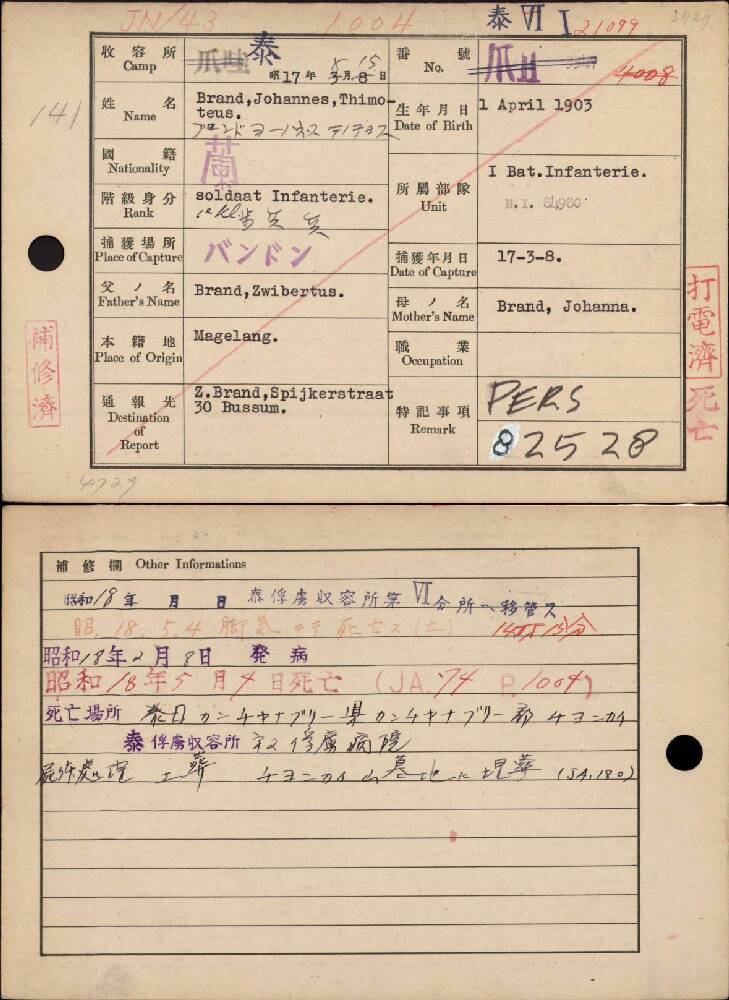 JN/43
1004
泰 VI I
21099
141
收容所
Camp
爪哇
泰
昭17年 8月15日
番號
No.
爪哇
4008
姓名
Name
Brand,Johannes,Thimo-
teus.
ブランド ヨーハネス テイテウス
生年月日
Date of Birth
1 April 1903
國籍
Nationality
蘭
階級身分
Rank
soldaat Infanterie.
1e Kl 歩兵 兵
所屬部隊
Unit
I Bat.Infanterie.
N.I. 84980
捕獲場所
Place of Capture
バンドン
捕獲年月日
Date of Capture
17-3-8.
父ノ名
Father's Name
Brand,Zwibertus.
母ノ名
Mother's Name
Brand, Johanna.
本籍地
Place of Origin
Magelang.
職業
Occupation
通報先
Destination
of
Report
Z.Brand,Spijkerstraat
30 Bussum.
特記事項
Remark
PERS
82528
補修濟
打電濟
死亡
4729
補修欄 Other Informations
昭和18年 月 日 泰俘虜収容所第VI分所へ移管ス
昭.18.5.4 脚気ニテ死亡ス(土)
昭和18年2月8日 発病
昭和18年5月4日死亡 (JA.74 P.1004)
死亡場所 泰国カンチャナブリー県カンチャナブリー郡チョンカイ
泰俘虜収容所 俘虜病院
屍体處理 土葬 チョンカイ 墓地ニ埋葬 (JA.180)